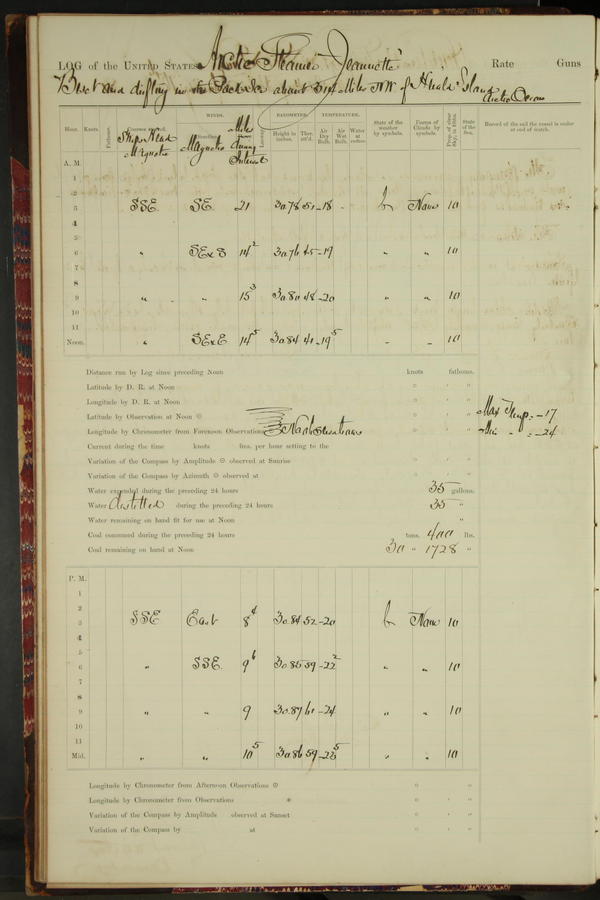 LOG of the UNITED STATES Arctic Steamer "Jeannette" Rate Guns
Beset and drifting in the Pack Ice about 314 Miles NW of Herald Island
Arctic Ocean
WINDS. BAROMETER. TEMPERATURE.
Hour. Knots. Fathoms. Courses steered. Ship's Head Magnetic Magnetic Miles during Interval Leeway Height in inches. Ther. att'd. Air Dry Bulb. Air Wet Bulb. Water at surface. State of the weather by symbols. Forms of Clouds by symbols. Prop. of clear Sky, in 10ths. State of the Sea. Record of the sail the vessel is under at end of watch.
A. M.
1
2
3 SSE SE 21 30.78 51 -18 b None 10
4
5
6 " SE x S 14² 30.76 45 -19 " " 10
7
8
9 " " 15³ 30.80 48 -20 " " 10
10
11
Noon. " SE x E 14⁵ 30.84 41 -19⁵ " " 10
Distance run by Log since preceding Noon knots fathoms.
Latitude by D. R. at Noon ° ' "
Longitude by D. R. at Noon ° ' "
Latitude by Observation at Noon ☉ ° ' " Max Temp. = -17
Longitude by Chronometer from Forenoon Observations No observations ° ' " Min " = -24
Current during the time knots fms. per hour setting to the
Variation of the Compass by Amplitude ☉ observed at Sunrise ° ' "
Variation of the Compass by Azimuth ☉ observed at ° ' "
Water expended during the preceding 24 hours 35 gallons.
Water distilled during the preceding 24 hours 35 "
Water remaining on hand fit for use at Noon "
Coal consumed during the preceding 24 hours tons. 400 lbs.
Coal remaining on hand at Noon 30 " 1728 "
P. M.
1
2
3 SSE East 8⁴ 30.84 52 -20 b None 10
4
5
6 " SSE 9⁶ 30.85 59 -22² " " 10
7
8
9 " " 9 30.87 61 -24 " " 10
10
11
Mid. " " 10⁵ 30.86 59 -23⁵ " " 10
Longitude by Chronometer from Afternoon Observations ☉ ° ' "
Longitude by Chronometer from Observations * ° ' "
Variation of the Compass by Amplitude observed at Sunset ° ' "
Variation of the Compass by at ° ' "